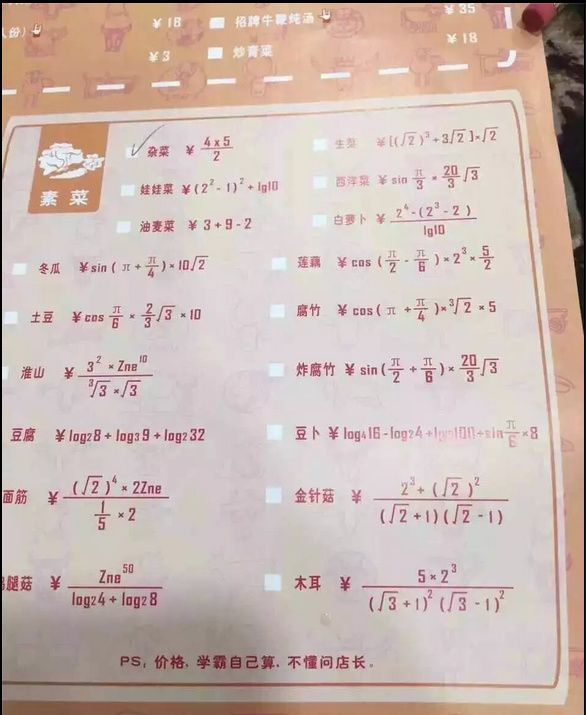 人份)
¥18
招牌牛鞭炖汤
¥35
¥3
炒青菜
¥18
素菜
杂菜 ¥ 4×5/2
生菜 ¥[(√2)³+3√2]×√2
娃娃菜 ¥(2²-1)²+lg10
西洋菜 ¥sin π/3 × 20/3 √3
油麦菜 ¥3+9-2
白萝卜 ¥ (2⁴-(2³-2))/lg10
冬瓜 ¥sin(π+π/4)×10√2
莲藕 ¥cos(π/2-π/6)×2³×5/2
土豆 ¥cos π/6 × 2/3 √3 ×10
腐竹 ¥cos(π+π/4)×³√2×5
淮山 ¥ (3²×Zne¹⁰)/(³√3×√3)
炸腐竹 ¥sin(π/2+π/6)×20/3 √3
豆腐 ¥log₂8+log₃9+log₂32
豆卜 ¥log₄16-log₂4+lg100÷sin π/6 ×8
面筋 ¥ ((√2)⁴×2Zne)/(1/5×2)
金针菇 ¥ (2³+(√2)²)/((√2+1)(√2-1))
腿菇 ¥ Zne⁵⁰/(log₂4+log₂8)
木耳 ¥ (5×2³)/((√3+1)²(√3-1)²)
PS，价格，学霸自己算，不懂问店长。